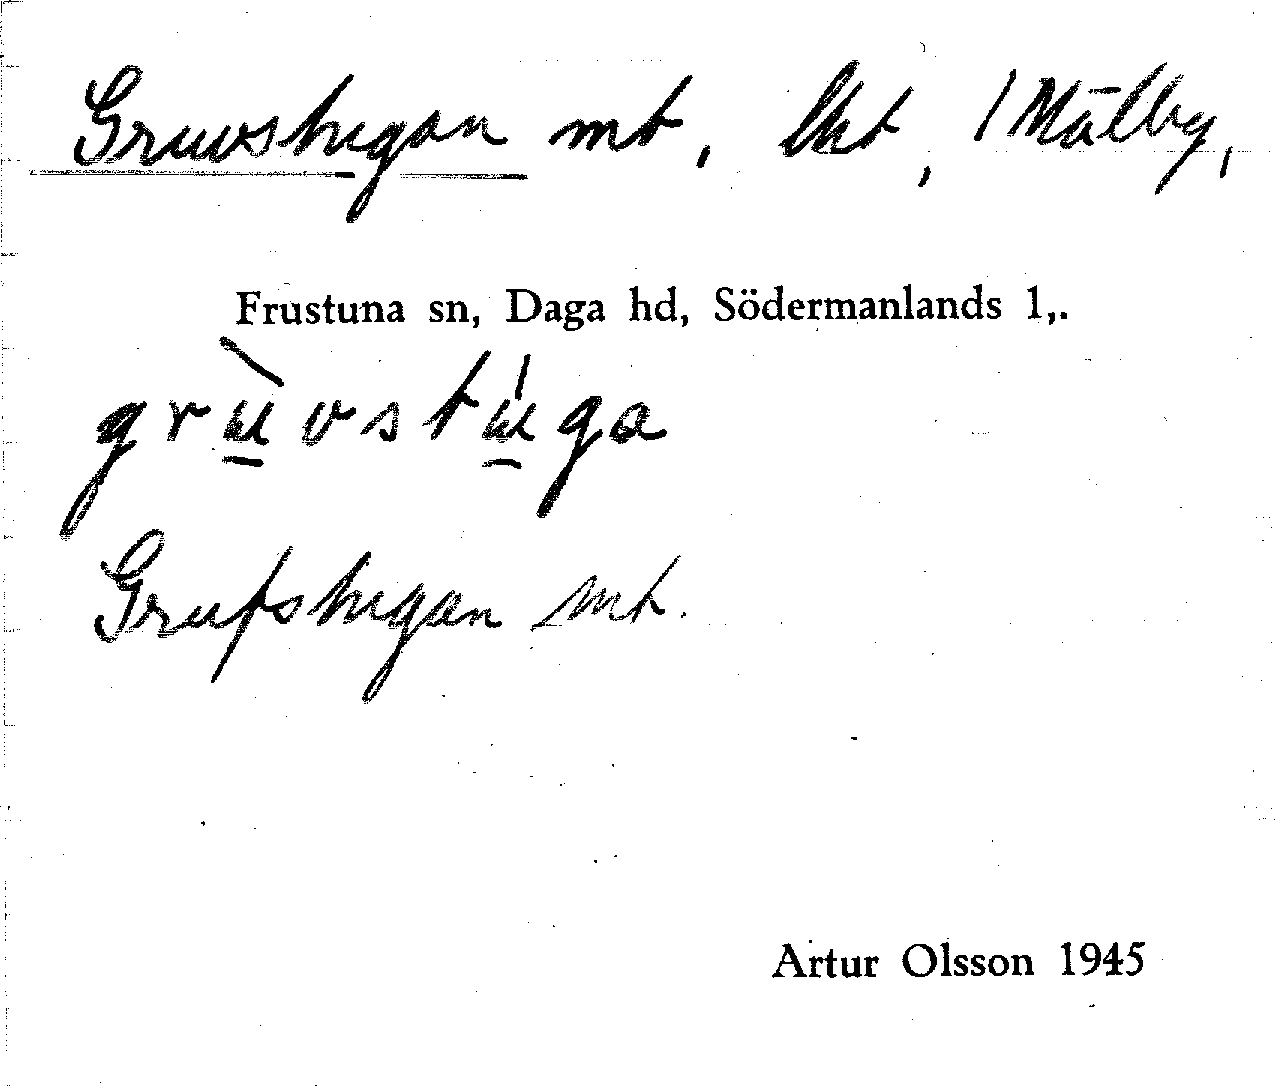 Gruvstugan mt, lht, 1 Målby,
Frustuna sn, Daga hd, Södermanlands l,.
grùvstúga
Grufstugan mt.
Artur Olsson 1945